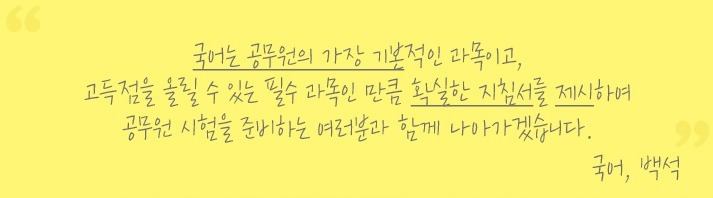 국어는 공무원의 가장 기본적인 과목이고,
고득점을 올릴 수 있는 필수 과목인 만큼 확실한 지침서를 제시하여
공무원 시험을 준비하는 여러분과 함께 나아가겠습니다.
국어, 백석